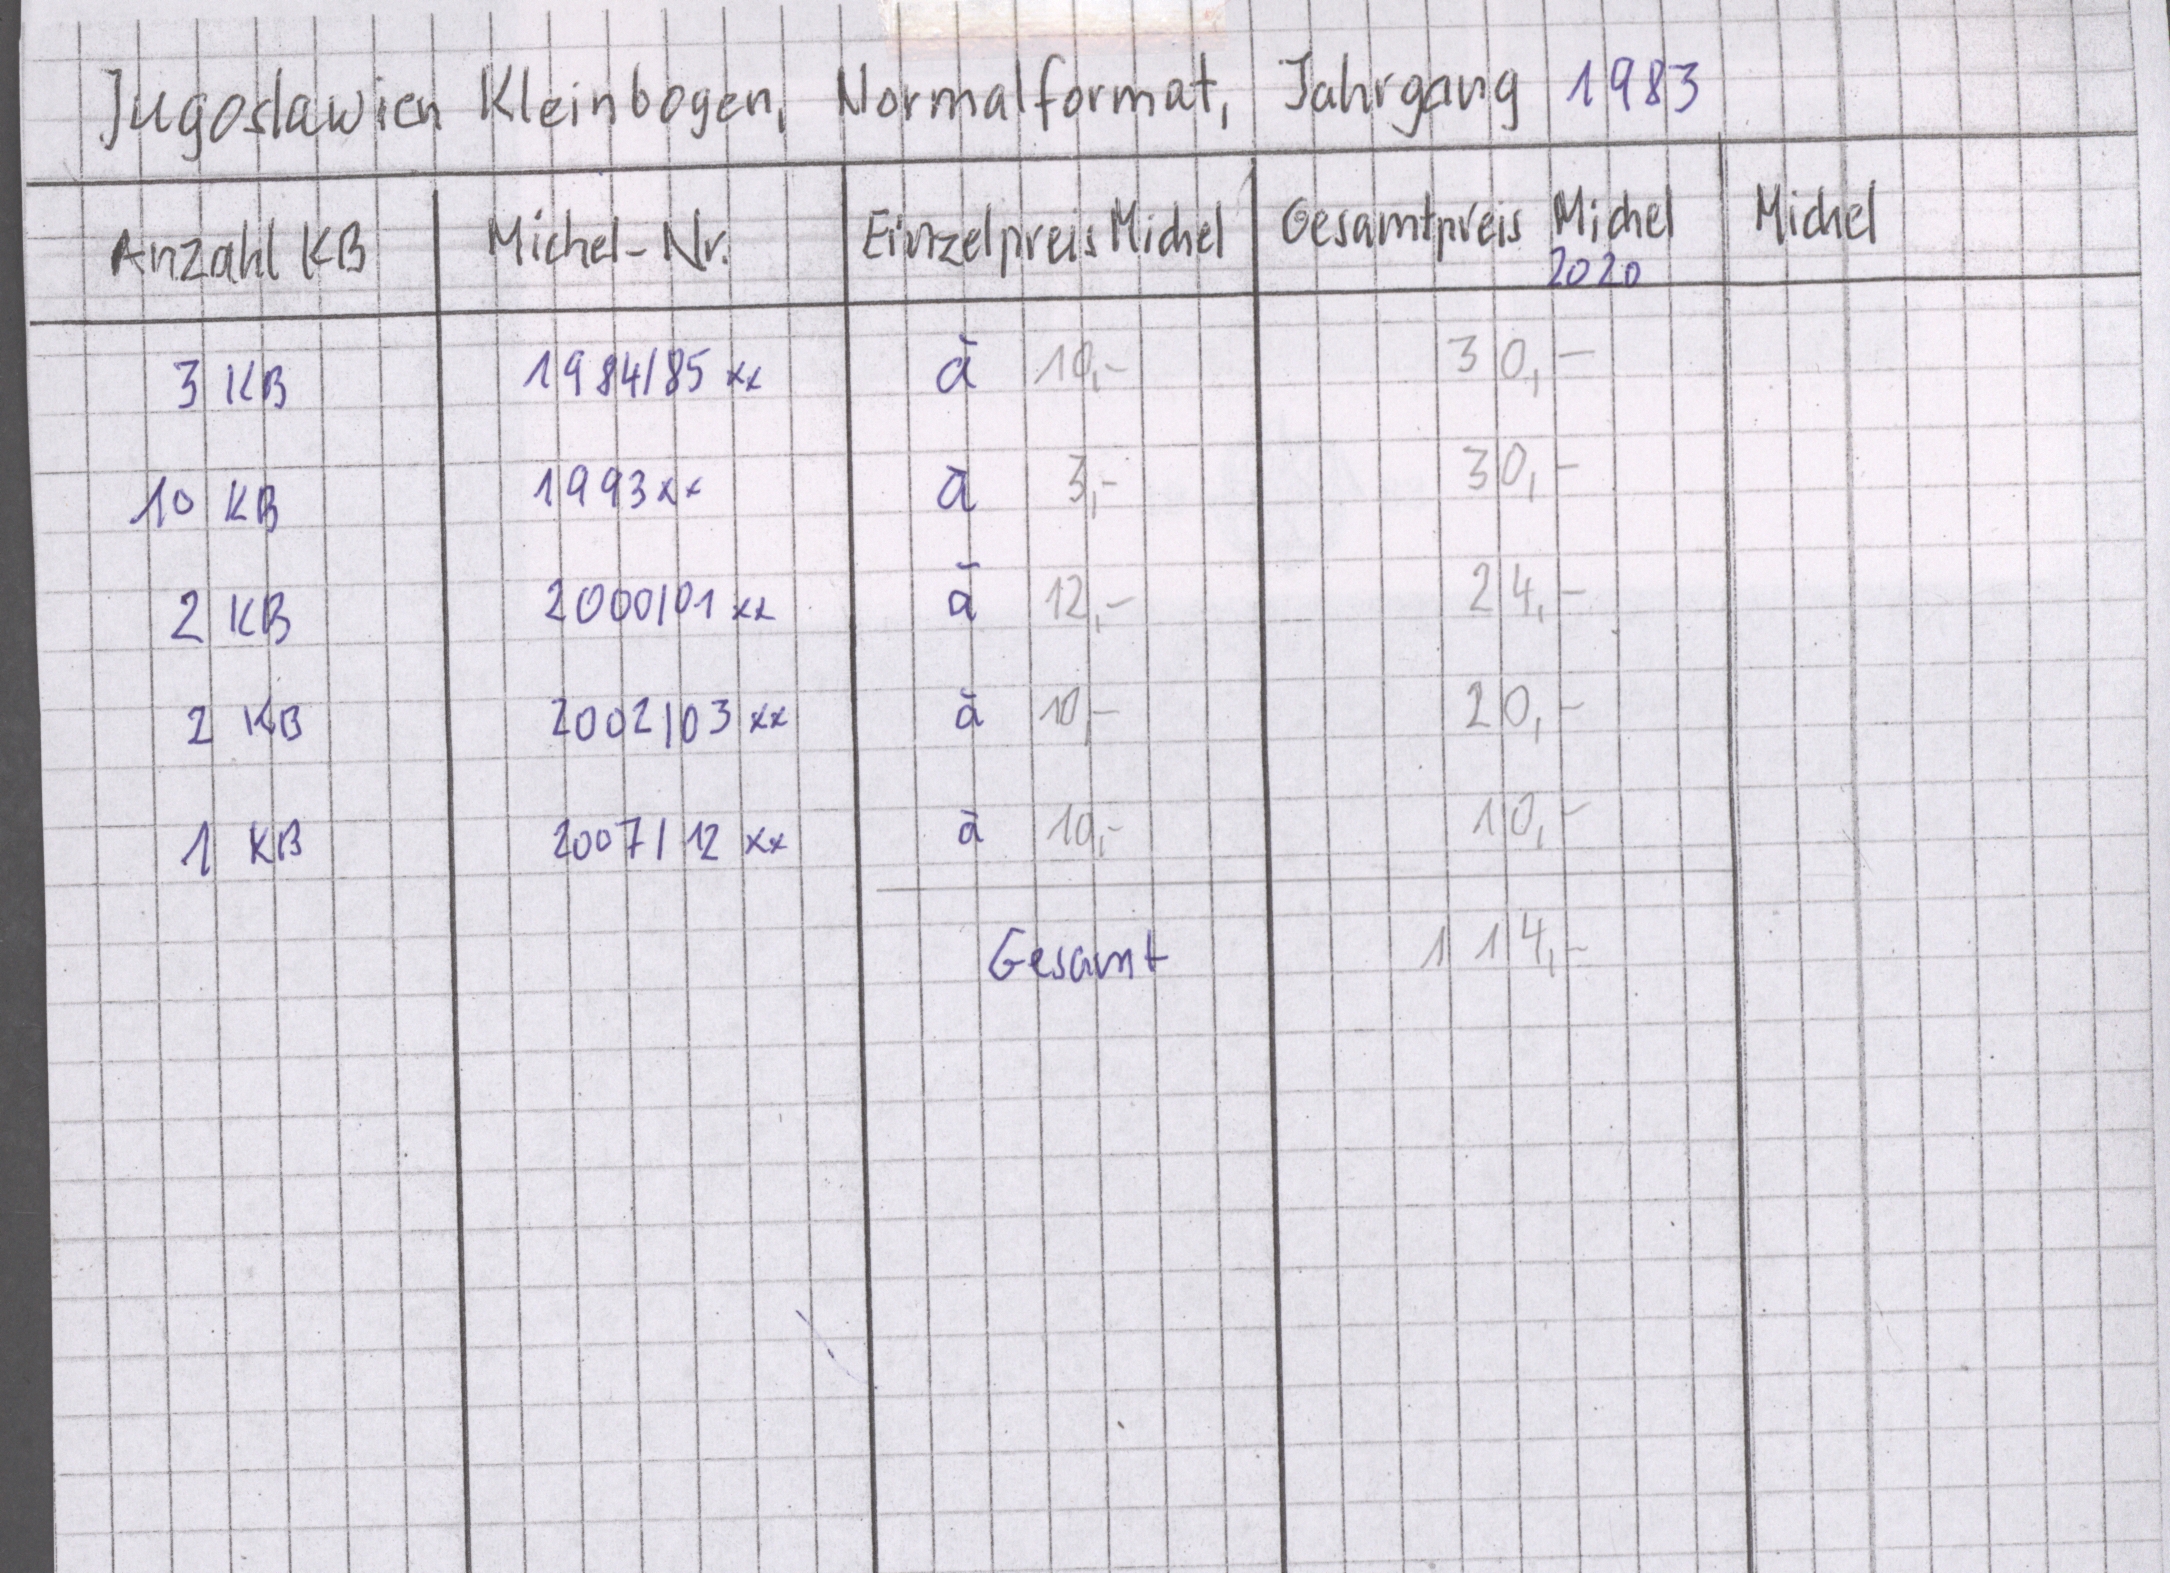 Jugoslawien Kleinbogen, Normalformat, Jahrgang 1983
Anzahl KB Michel-Nr. Einzelpreis Michel Gesamtpreis Michel 2020 Michel
3 KB 1984/85 xx à 10,- 30,-
10 KB 1993 xx à 3,- 30,-
2 KB 2000/01 xx à 12,- 24,-
2 KB 2002/03 xx à 10,- 20,-
1 KB 2007/12 xx à 10,- 10,-
Gesamt 114,-